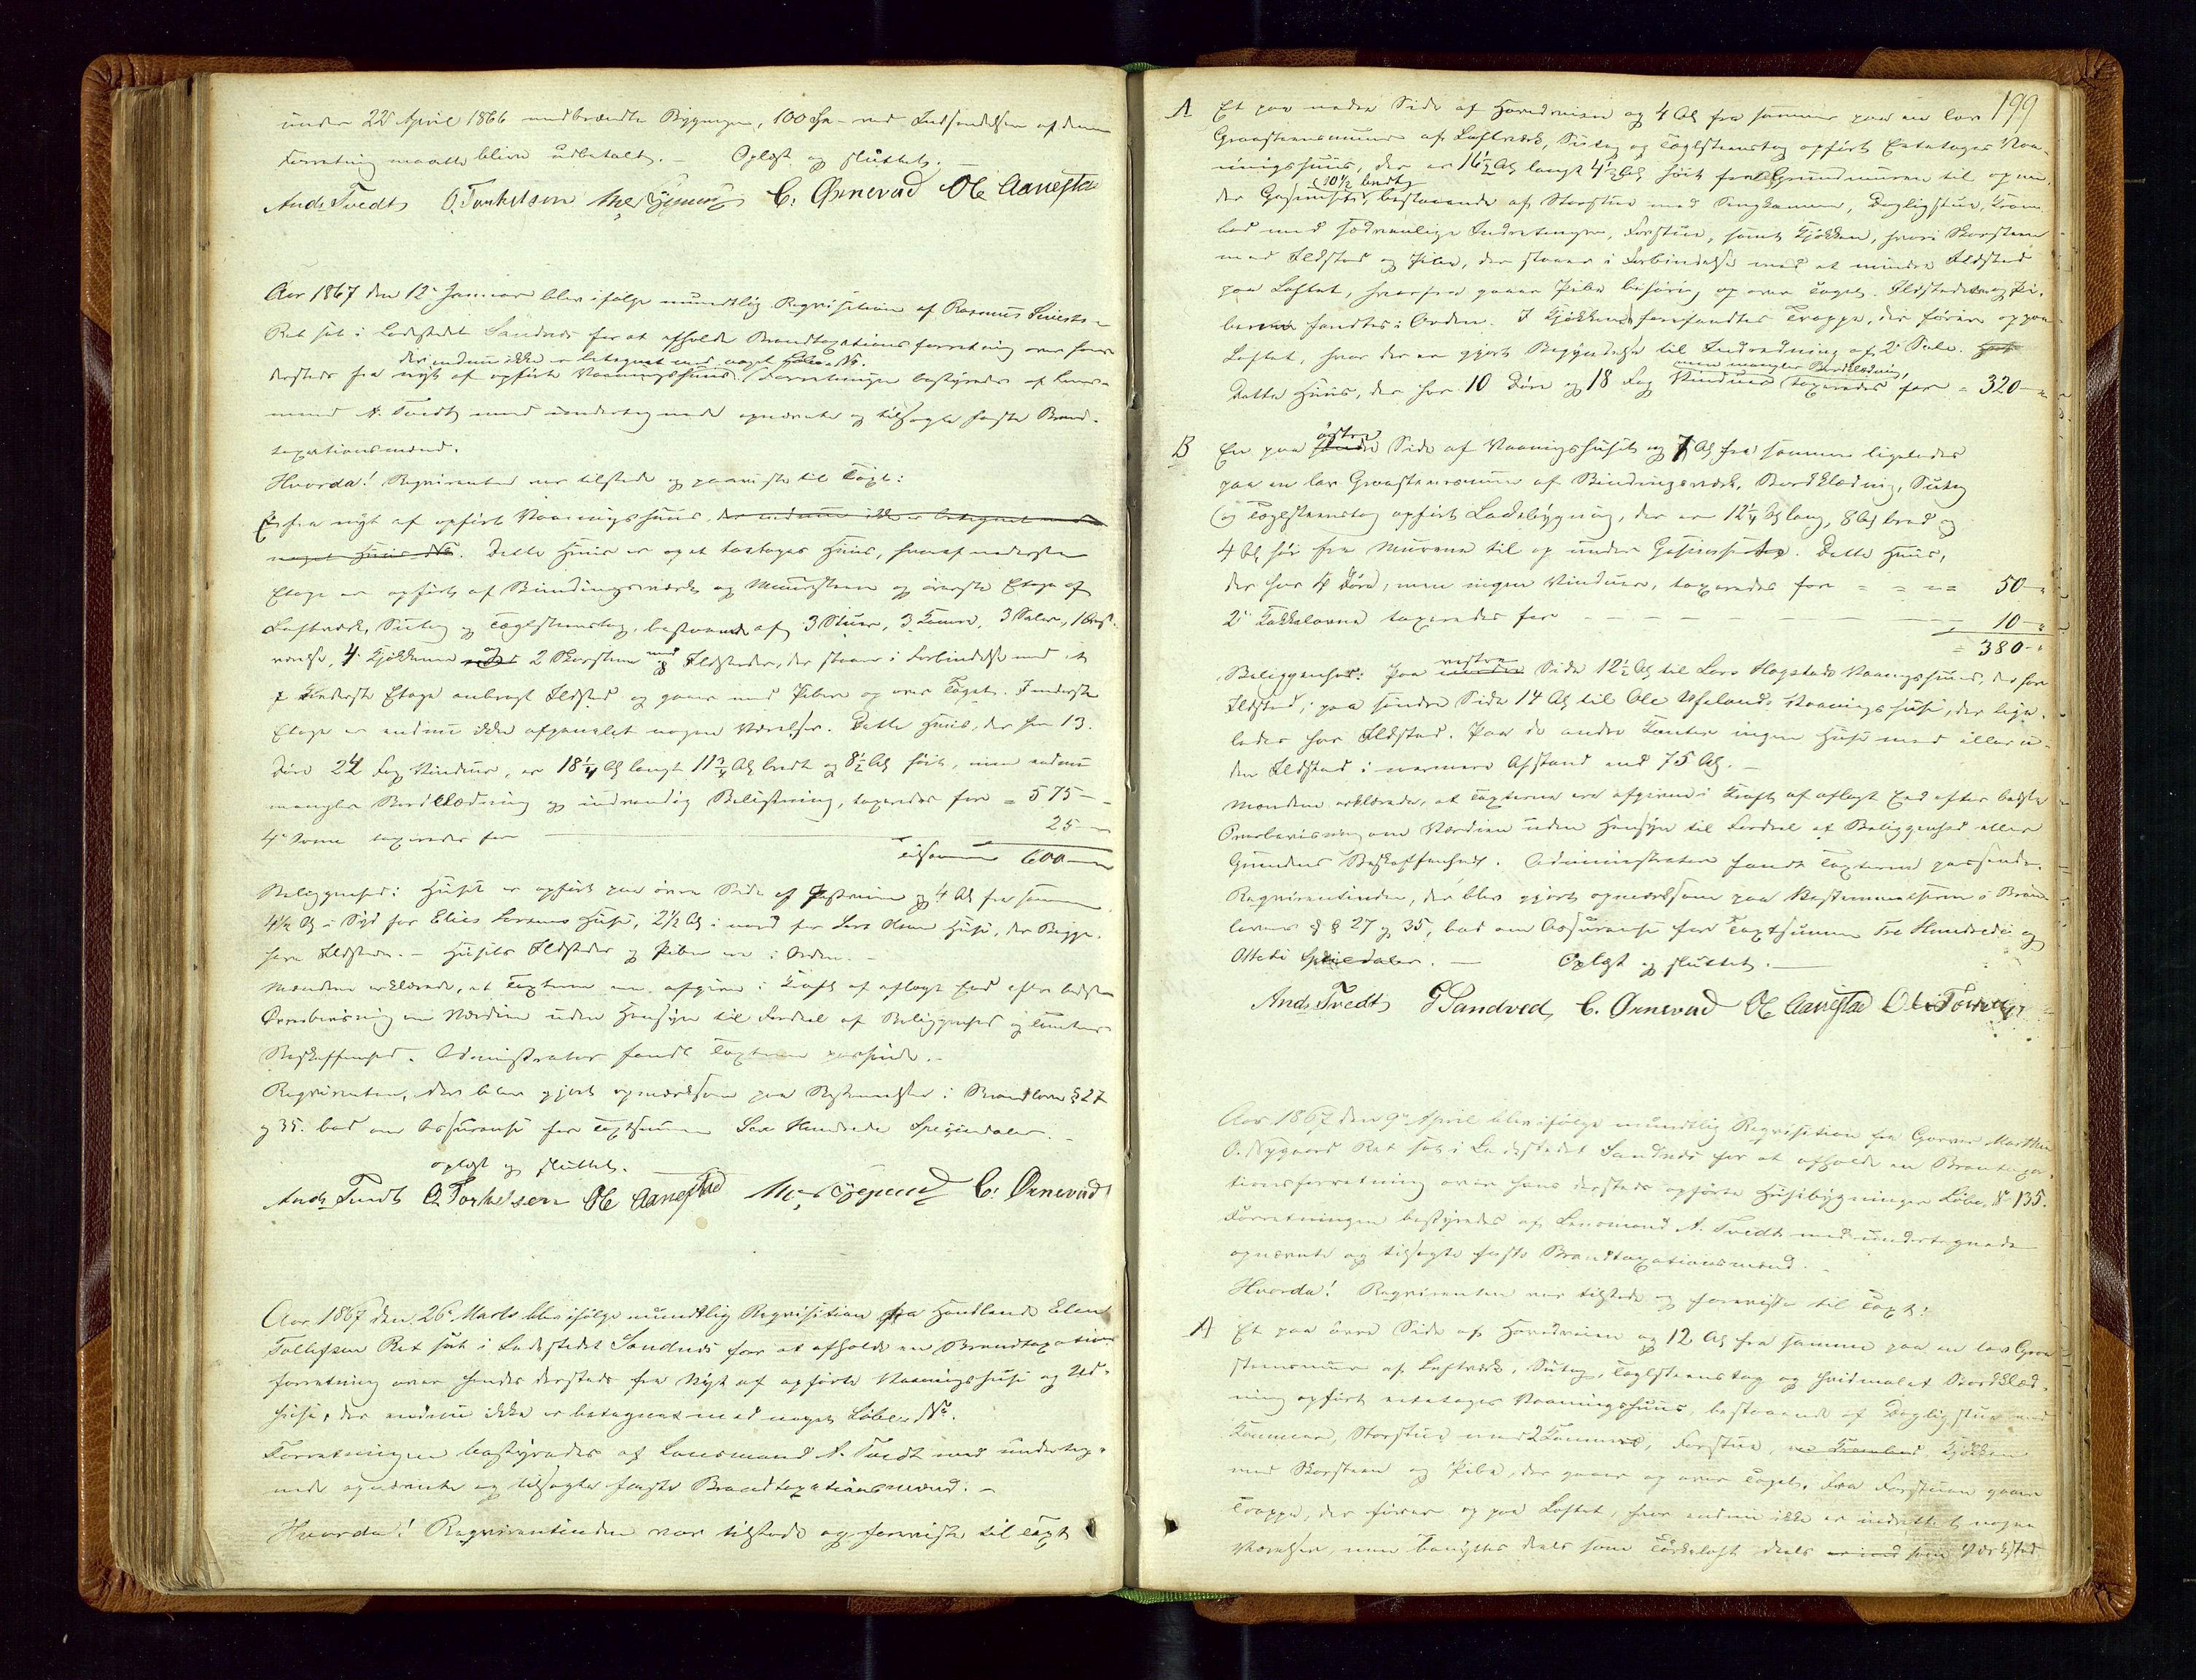 under 22de April 1866 nedbrændte Bygninger, 100 Spd. ved Indsendelsen af denne
Forretning maatte blive udbetalt. – Oplæst og sluttet. –
Ands Tvedt O. Torkelsen C. Ørnevad Ole Aanestad
Aar 1867 den 12te Januar blev ifølge mundtlig Requisition af Rasmus
Ret sat i Ladestedet Sandnes for at afholde Brandtaxationsforretning over hans
der endnu ikke er betegnet med noget No.
dersteds fra nyt af opførte Vaaningshuus. Forretningen bestyredes af Lens-
mand A. Tvedt med undertegnede opnævnte og tilsagte faste Brand-
taxationsmænd.
Hvorda! Requirenten var tilstede og paaviste til Taxt:
Et fra nyt af opført Vaaningshuus, der endnu ikke er betegnet med
noget Huus No. Dette Huus er og et toetages Huus, hvoraf nederste
Etage er opført af Bindingsværk og Muursteen og øverste Etage af
Laftværk, Sutag og Taglsteenstag, bestaaende af 3 Stuer, 3 Kamre, 3 Sale, 1
værelse, 4 Kjøkkener og 2 Skorstene med Ildsteder, der staaer i Forbindelse med et
i nederste Etage anbragt Ildsted og gaaer med Piben op over Taget. I nederste
Etage er endnu ikke afpanelet nogen Værelser. Dette Huus, der har 13
Døre 24 Fag Vinduer, er 18 1/4 Al langt 11 3/4 Al bredt og 8 1/2 Al høit, men endnu
mangler Bordklædning og indvendig Beklistring, taxeredes for = 575 –
4de Ovne taxeredes for 25 –
Tilsammen 600 –
Beliggenhed: Huset er opført paa øvre Side af Postveien og 4 Al fra samme
4 1/2 Al i Syd for Elias Larsens Huse, 2 1/2 Al i nord for Lars Olsens Huse, der Begge
have Ildsteder. – Husets Ildsteder og Piber ere i Orden. –
Mændene erklærede, at Taxterne ere afgivne i Kraft af aflagt Eed efter bedste
Overbeviisning om Værdien uden Hensyn til Fordeel af Beliggenhed og Tomtens
Beskaffenhed. Administrator fandt Taxterne passende. –
Requirenten, der blev gjort opmærksom paa Bestemmelser i Brandloven § 27
og 35. bad om Assurance for Taxtsummen Sex Hundrede Speciedaler. –
oplæst og sluttet.
Ands Tvedt O. Torkelsen Ole Aanestad C. Ørnevad
Aar 1867 den 26de Marts blev ifølge mundtlig Requisition fra Handlende Elen
Tollefsen Ret sat i Ladestedet Sandnes for at afholde en Brandtaxations-
forretning over hendes dersteds fra Nyt af opførte Vaaningshuse og Ud-
huse, der endnu ikke er betegnet med noget Løbe No.
Forretningen bestyredes af Lensmand A. Tvedt med underteg-
nede opnævnte og tilsagte faste Brandtaxationsmænd. –
Hvorda! Requirentinden var tilstede og foreviste til Taxt
199
A Et paa nedre Side af Hovedveien og 4 Al fra samme paa en lav
Graasteensmuur af Laftværk, Sutag og Taglsteenstag opført Eetetages Vaa-
ningshuus, der er 16 1/2 Al langt 4 1/2 Al høit fra Grundmuren til op un-
10 1/2 bredt
der Gesimset, bestaaende af Storstue med Sengkammer, Dagligstue, Kram-
bod med sædvanlige Indretninger, Forstue, samt Kjøkken, hvori Skorsteen
med Ildsted og Pibe, der staaer i Forbindelse med et mindre Ildsted
paa Loftet, hvorfra gaaer Pibe op over Taget. Ildstederne og Pi-
berne fandtes i Orden. I Kjøkkenet forefandtes Trappe, der fører op paa
Loftet, hvor der er gjort Begyndelse til Indredning af 2de Sale.
men mangler Bordklædning,
Dette Huus, der har 10 Døre og 18 Fag Vinduer taxeredes for = 320 –
B En paa østre Side af Vaaningshuset og 7 Al fra samme ligeledes
paa en lav Graasteensmuur af Bindingsværk, Bordklædning, Sutag
og Taglsteenstag opført Ladebygning, der er 12 1/4 Al lang, 8 Al bred og
4 Al høi fra Murene til op under Gesimset. Dette Huus,
der har 4 Døre, men ingen Vinduer, taxeredes for = = = = 50 –
2de Kakkelovne taxeredes for – – – – 10 –
= 380 –
Beliggenhed: Paa vestre Side 12 1/2 Al til Lars Hogstads Vaaningshuus, der har
Ildsted; paa søndre Side 14 Al til Ole Vaaningshuse, der lige-
ledes har Ildsted. Paa de andre Kanter ingen Huse med eller u-
den Ildsted i nærmere Afstand end 75 Al. –
Mændene erklærede, at Taxterne ere afgivne i Kraft af aflagt Eed efter bedste
Overbeviisning om Værdien uden Hensyn til Fordeel af Beliggenhed eller
Grundens Beskaffenhed. Administrator fandt Taxterne passende.
Requirentinden, der blev gjort opmærksom paa Bestemmelserne i Brand-
lovens §§ 27 og 35, bad om Assurance for Taxtsummen Tre Hundrede og
Otteti Speciedaler. – Oplæst og sluttet. –
Ands Tvedt Sandved, C. Ørnevad Ole Aanestad
Aar 1867 den 9de April blev ifølge mundtlig Requisition fra Garver
O. Nygaard Ret sat i Ladestedet Sandnes for at afholde en Brantaxa-
tionsforretning over hans dersteds opførte Huusbygninger Løbe No 135.
Forretningen bestyredes af Lensmand A. Tvedt med undertegnede
opnævnte og tilsagte faste Brandtaxationsmænd. –
Hvorda! Requirenten var tilstede og foreviste til Taxt:
A Et paa øvre Side af Hovedveien og 12 Al fra samme paa en lav Graa-
steensmuur af Laftværk, Sutag, Taglsteenstag og hvidmalet Bordklæd-
ning opført eetetages Vaaningshuus, bestaaende af Dagligstue med
Kammer, Storstue med 2 Kammere, Forstue, Kjøkken
med Skorsteen og Pibe, der gaaer op over Taget. Fra Forstuen gaaer
Trappe, der fører op paa Loftet, hvor endnu ikke er indrettet nogen
Værelser, men benyttes deels som Tørkeloft deels som Værksted